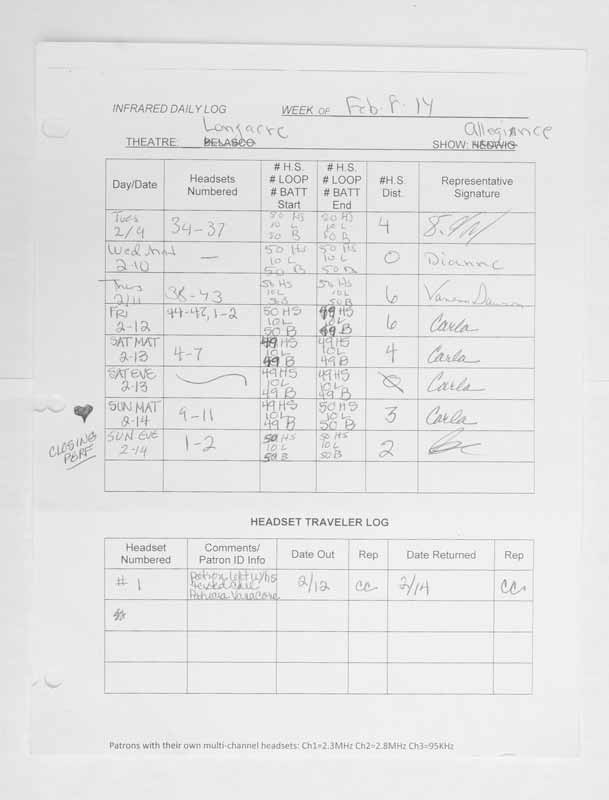 INFRARED DAILY LOG WEEK OF Feb. 8. 14
Longacre Allegiance
THEATRE: BELASCO SHOW: HEDWIG
Day/Date Headsets Numbered # H.S. # LOOP # BATT Start # H.S. # LOOP # BATT End #H.S. Dist. Representative Signature
Tues 2/9 34-37 50 HS 10 L 50 B 50 HS 10 L 50 B 4
Wed Mat 2-10 — 50 Hs 10 L 50 B 50 Hs 10 L 50 B 0 Dianne
Thurs 2/11 38-43 50 HS 10L 50 B 50 HS 10L 50B 6
FRI 2-12 44-48, 1-2 50 HS 10 L 50 B 49 HS 10 L 49 B 6 Carla
SAT MAT 2-13 4-7 49 HS 10L 49 B 49HS 10L 49 B 4 Carla
SAT EVE 2-13 49 HS 10L 49 B 49HS 10L 49 B 0 Carla
SUN MAT 2-14 9-11 49 HS 10L 49 B 50 HS 10L 50 B 3 Carla
SUN EVE 2-14 1-2 50 HS 10 L 50 B 50 HS 10L 50 B 2
CLOSING
PERF
HEADSET TRAVELER LOG
Headset Numbered Comments/ Patron ID Info Date Out Rep Date Returned Rep
# 1 patron left w/hs 2/12 CC 2/14 CC
Patrons with their own multi-channel headsets: Ch1=2.3MHz Ch2=2.8MHz Ch3=95KHz